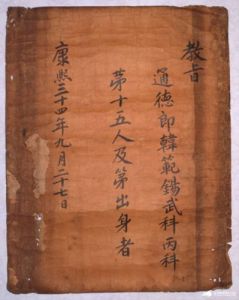 教旨
通德郎韓範錫武科丙科
第十五人及第出身者
康熙三十四年九月二十七日